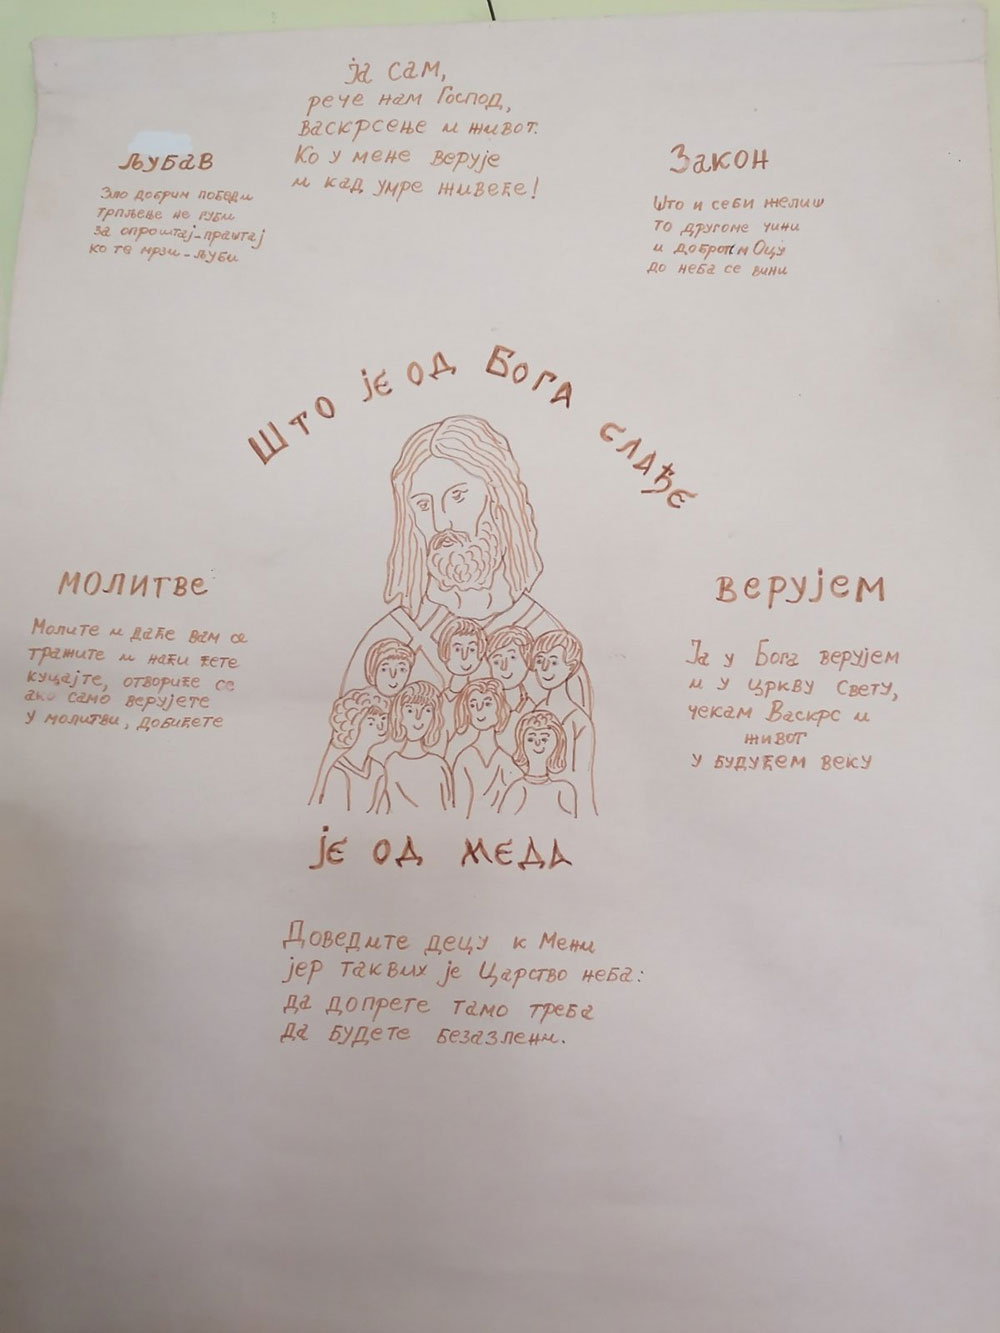 Ја сам,
рече нам Господ,
васкрсење и живот.
Ко у мене верује
и кад умре живеће!
љубав
Зло добрим победи
трпљење не губи
за опроштај-праштај
ко те мрзи-љуби
Закон
Што и себи желиш
то другоме чини
и добротом Оцу
до неба се вини
Што је од Бога слађе
молитве
Молите и даће вам се
тражите и наћи ћете
куцајте, отвориће се
ако само верујете
у молитви, добићете
верујем
Ја у Бога верујем
и у цркву Свету,
чекам Васкрс и
живот
у будућем веку
је од меда
Доведите децу к Мени
јер таквих је Царство неба:
да допрете тамо треба
да будете безазлени.